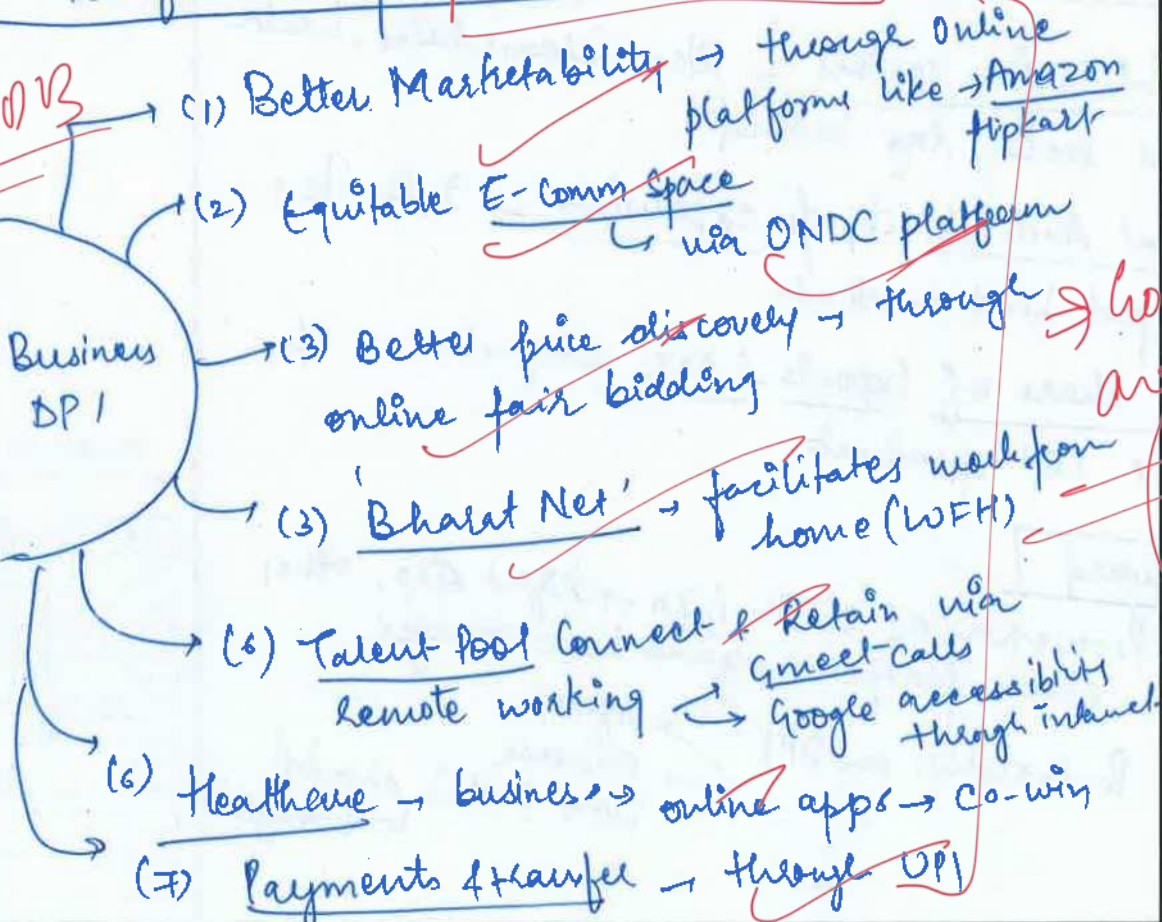 (1) Better Marketability → through Online
platforms like → Amazon
flipkart
(2) Equitable E-Comm space
via ONDC platform
Business
DPI
(3) Better price discovery → through
online fair bidding
(3) 'Bharat Net' → facilitates work from
home (WFH)
(6) Talent Pool Connect & Retain via
Gmeet calls
remote working → Google accessibility
through internet
(6) Healthcare → business → online apps → Co-win
(7) Payments & transfer → through UPI